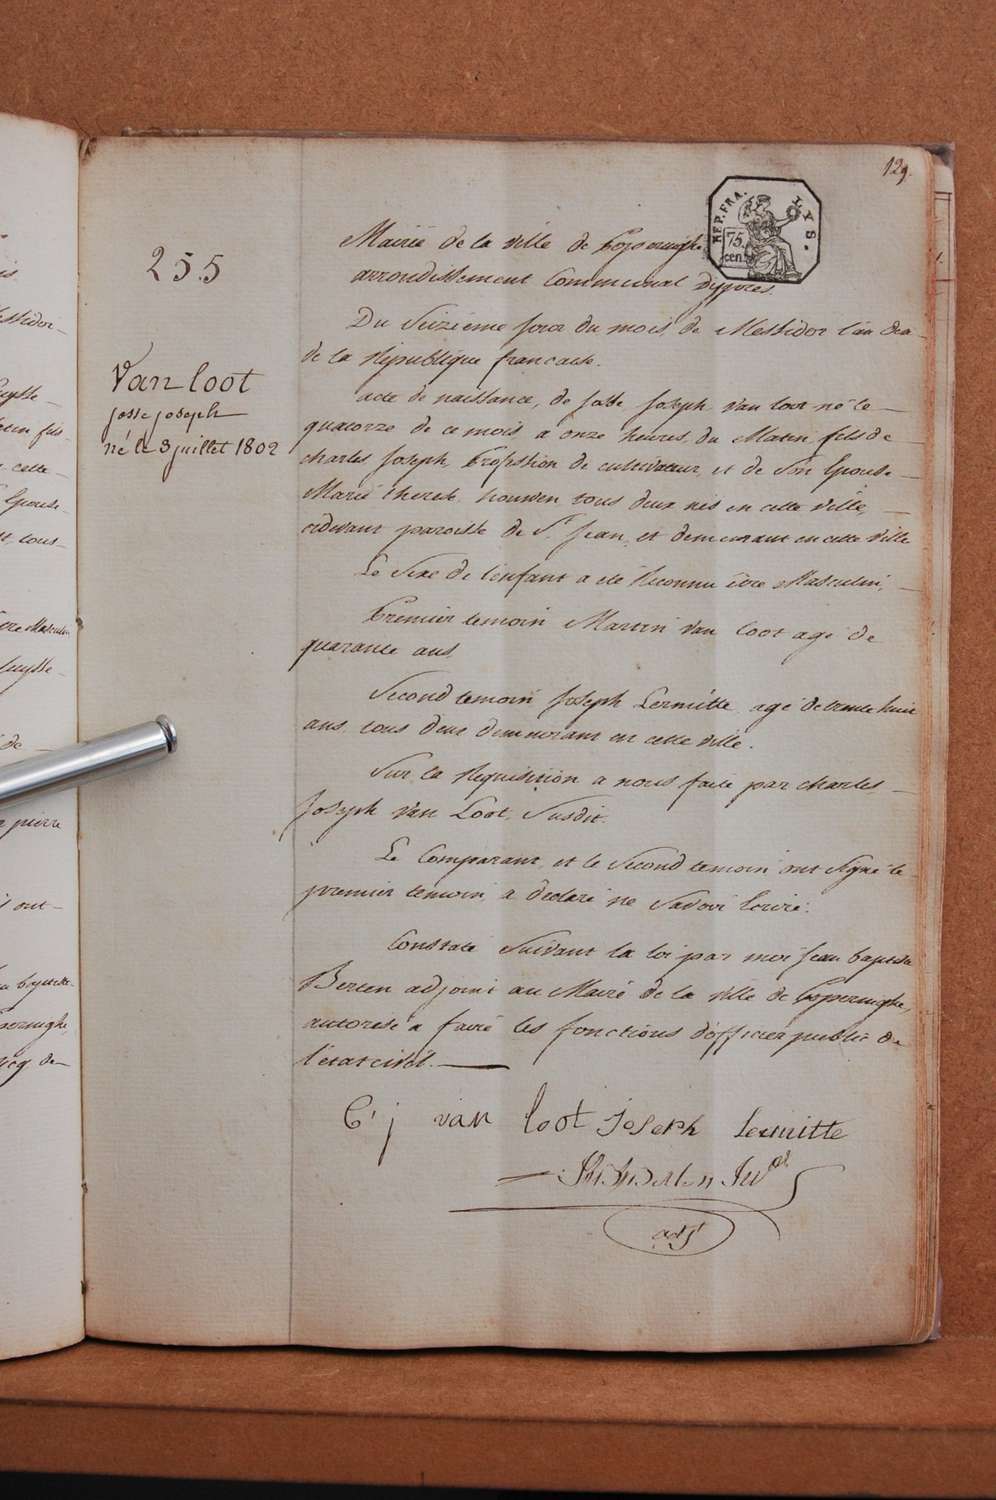 129.
REP. FRA.
LYS.
75.
cen.
255
Mairie de la ville de Poperinghe
arrondissement Communal D'ypres.
Du Seizieme jour du mois de Messidor l'an dix
de la République francaise.
Van loot
josse joseph
né le 3 juillet 1802
acte de naissance, de Josse Joseph Van loot né le
quatorze de ce mois a onze heures du Matin fils de
charles Joseph Profession de cultivateur, et de Son Epouse
Marie therese houwen tous deux nés en cette ville,
cidevant paroisse de St Jean, et demeurant en cette ville
Le Sexe de l'enfant a été Reconnu être Masculin,
Premier temoin Martin Van loot agé de
quarante ans
Second temoin Joseph Lermitte agé de trente huit
ans, tous deux demeurant en cette ville.
Sur la Requisition a nous faite par charles
Joseph Van Loot, Susdit.
Le Comparant et le Second temoin ont Signé le
premier temoin a declaré ne Savoir Ecrire.
Constaté Suivant la loi par moi Jean baptiste
Berten adjoint au Maire de la ville de Poperinghe,
autorisé a faire les fonctions d'officier public de
l'état civil.
C j van loot Joseph Lermitte
adjt